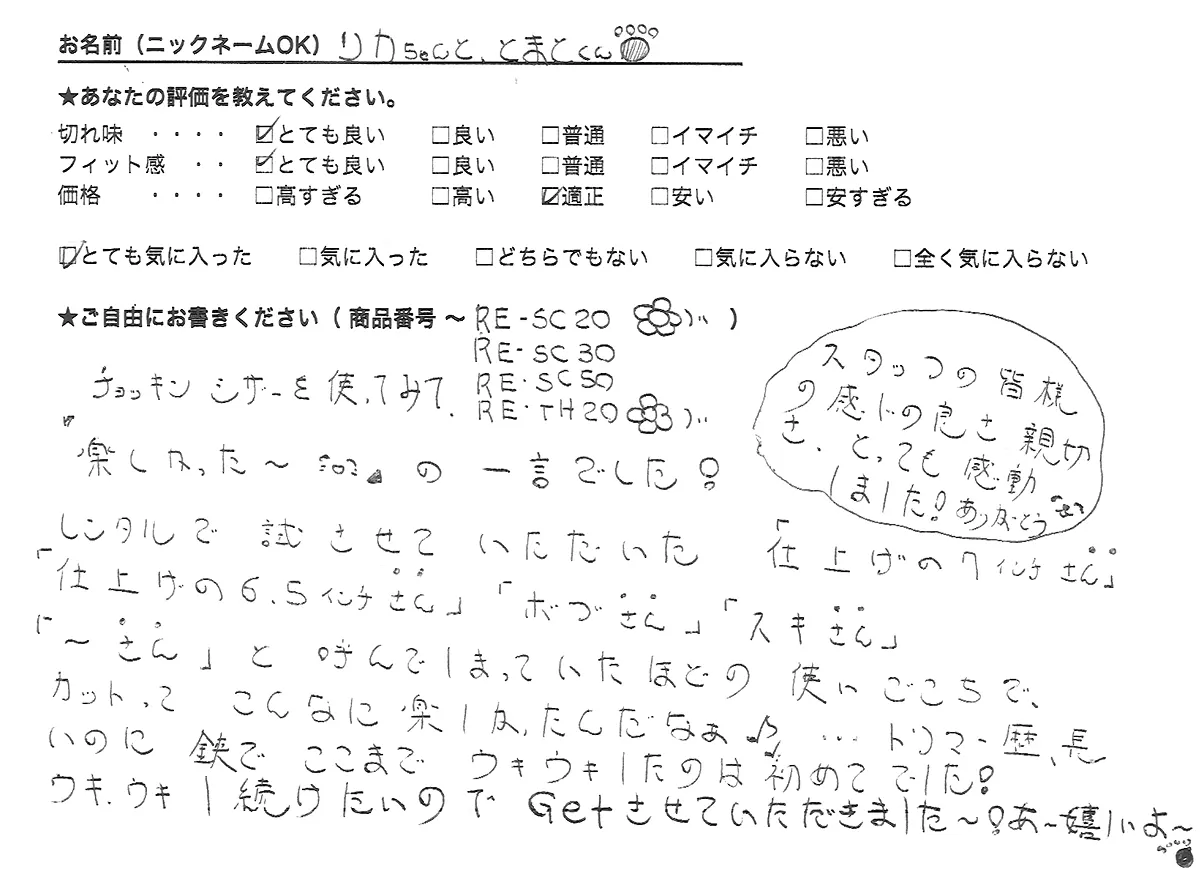 お名前（ニックネームOK）リカちゃんと、とまとくん
★あなたの評価を教えてください。
切れ味　・・・・　☑とても良い　□良い　□普通　□イマイチ　□悪い
フィット感　・・　☑とても良い　□良い　□普通　□イマイチ　□悪い
価格　・・・・　□高すぎる　□高い　☑適正　□安い　□安すぎる
☑とても気に入った　□気に入った　□どちらでもない　□気に入らない　□全く気に入らない
★ご自由にお書きください（商品番号～RE-SC20　）
RE-SC30
RE-SC50
RE-TH20
チョッキンシザーを使ってみて、
『楽しかった～』の一言でした!
レンタルで試させていただいた「仕上げの7インチさん」
「仕上げの6.5インチさん」「ボブさん」「スキさん」
「～さん」と呼んでしまっていたほどの使いごこちで、
カットってこんなに楽しかったんだなぁ♪…トリマー歴、長
いのに鋏でここまでウキウキしたのは初めてでした!
ウキ、ウキし続けたいのでGetさせていただきました～!あ～嬉しいよ～
スタッフの皆様
の感じの良さ親切
さ、とっても感動
しました!ありがとう